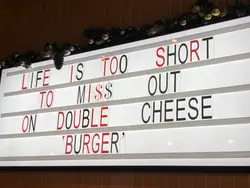 LIFE IS TOO SHORT
TO MI$$ OUT
ON DOUBLE CHEESE
'BURGER'